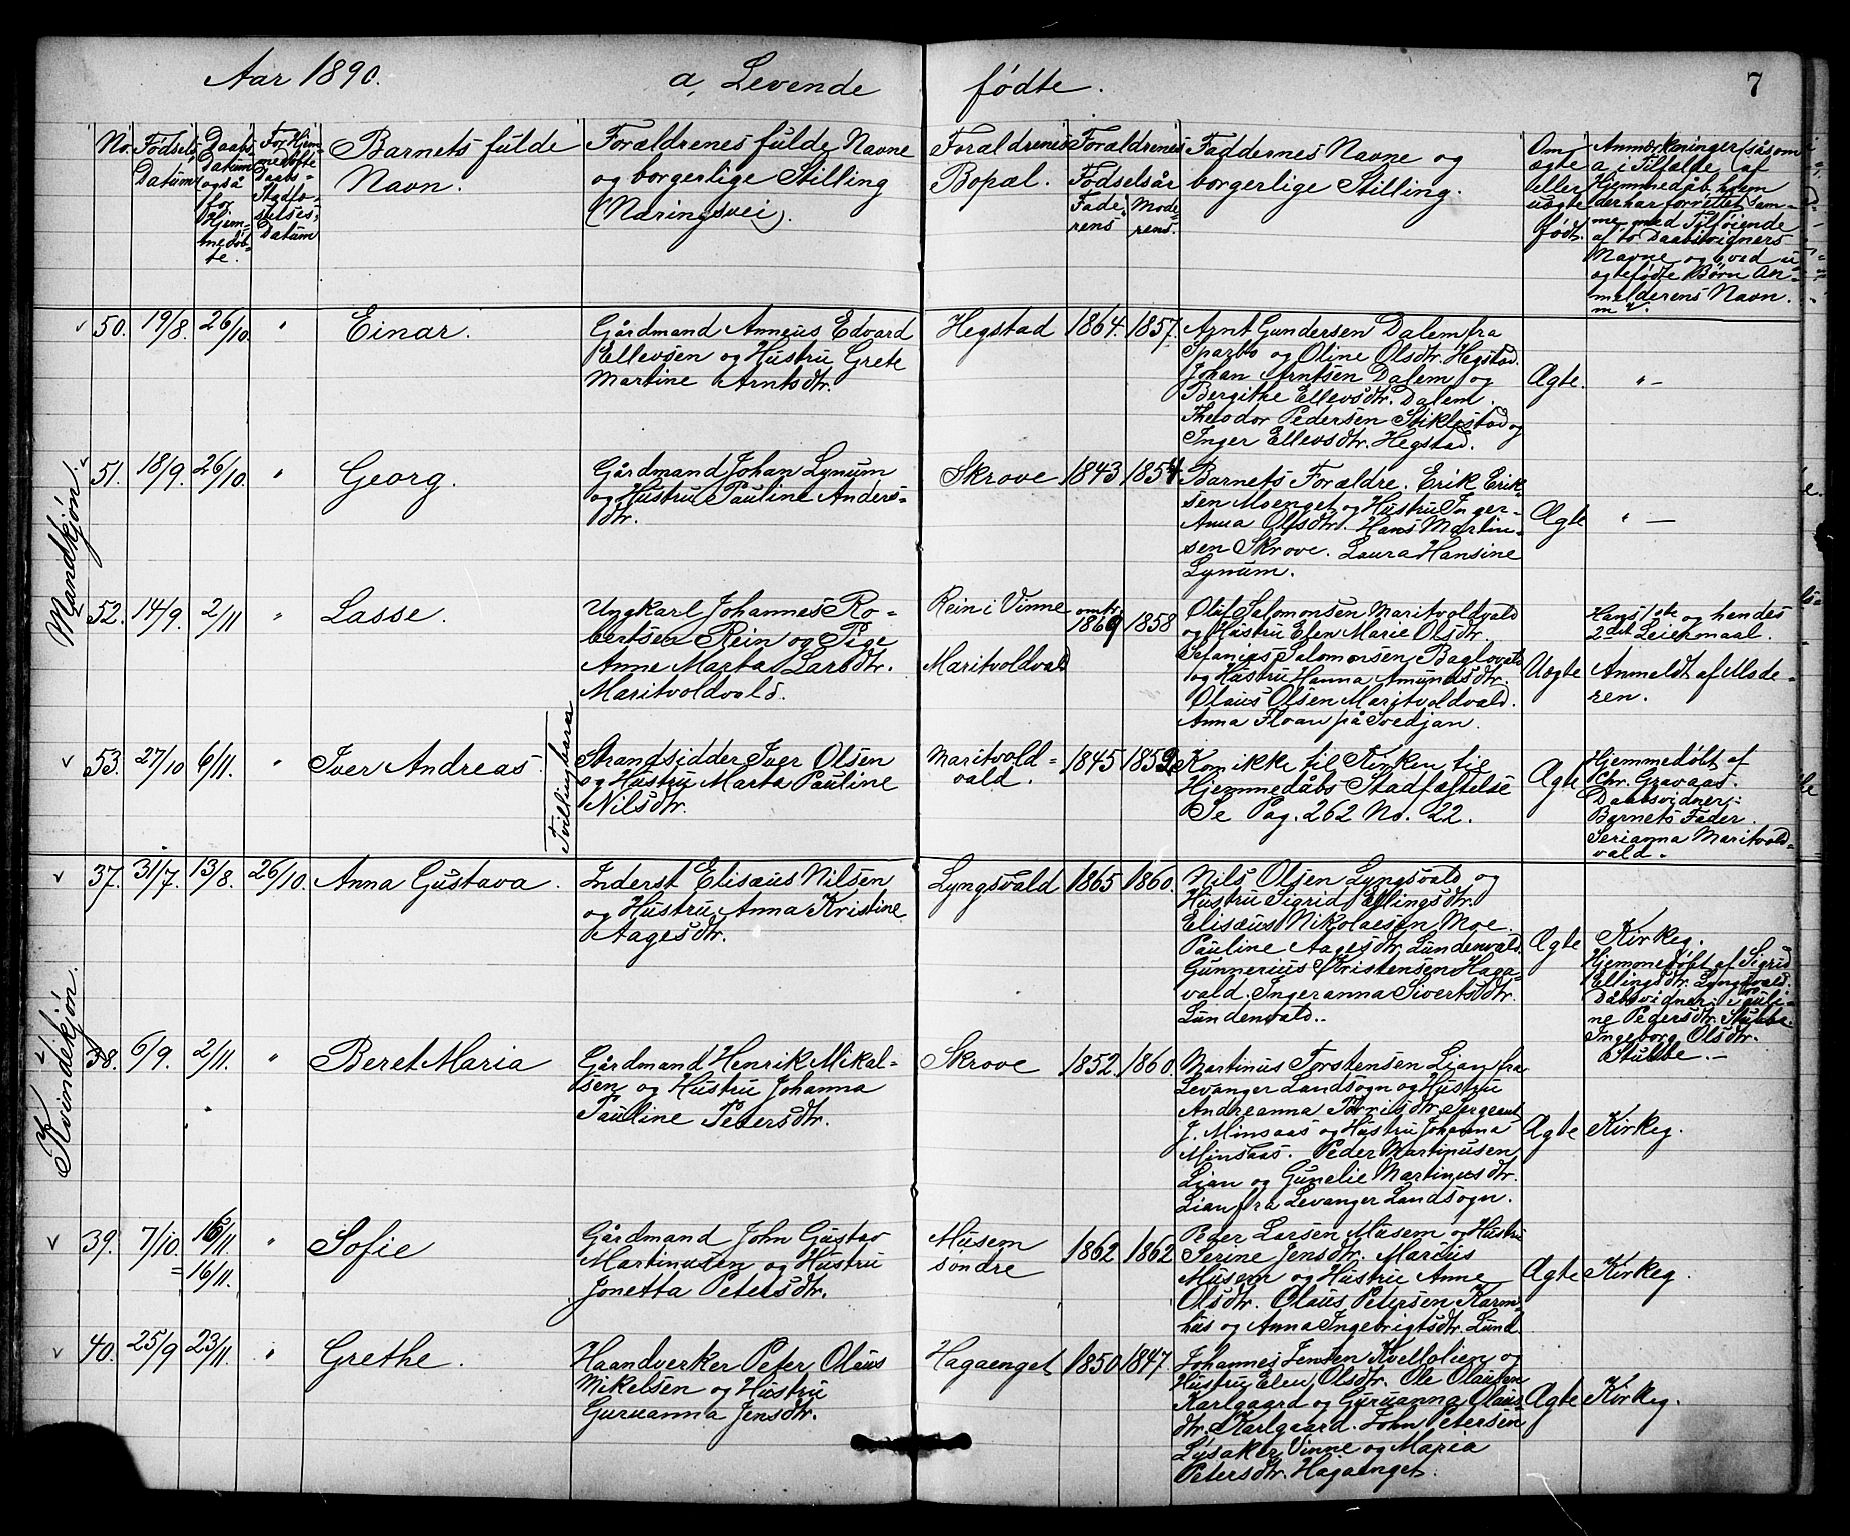 Aar 1890. a, Levende fødte. 7
No.
Fødsels Datum
Daabs Datum også for Hjemmedøbte.
For Hjemmedøbte Daabs-Stadfæstelses, Datum
Barnets fulde
Navn.
Forældrenes fulde Navne
og borgerlige Stilling
(Næringsvei).
Forældrenes
Bopæl.
Forældrenes
Fødselsår
Faderens
Moderens.
Faddernes Navne og
borgerlige Stilling.
Om
ægte
eller
uægte
født.
Anmærkninger (såsom
a, i Tilfælde af
Hjemmedåb, hvem
der har forrettet sam-
me, med Tilføiende
af to Daabsvidners
Navne og b, ved u-
ægtefødte Børn An-
melderens Navn.
m V.
Mandkjøn.
50. 19/8. 26/10. " Einar.
Gårdmand Anneus Edvard
Ellevsen og Hustru Grete
Martine Arntsdtr.
Hegstad 1864. 1857.
Arnt Gundersen Dalem fra
Sparbo og Oline Olsdtr. Hegstad.
Johan Arntsen Dalem og
Bergithe Ellevsdtr. Dalem.
Theodor Pedersen Stiklestad og
Inger Ellevsdtr. Hegstad.
Ægte. "–
51. 18/9. 26/10. " Georg.
Gårdmand Johan Lynum
og Hustru Pauline Anders-
dtr.
Skrove 1843 1854
Barnets Forældre. Erik Erik-
sen Moenget og Hustru Inger-
Anna Olsdtr. Hans Martin-
sen Skrove. Laura Hansine
Lynum.
Ægte " –
52. 14/9. 2/11 " Lasse.
Ungkarl Johannes Ro-
bertsen Rein og Pige
Anne Marta Larsdtr.
Maritvoldvald.
Rein i Vinne
Maritvoldvald
omtr. 1869 1858
Oluf Salomonsen Maritvoldvald
og Hustru Elen Marie Olsdtr.
Sefanias Salomonsen Baglovald
og Hustru Hanna Amundsdtr.
Olaus Olsen Maritvoldvald.
Anna Floan på Svedjan.
Uægte
Hans 1ste og hendes
2det Leiermaal.
Anmeldt af Mode-
ren.
53. 27/10 6/11. " Iver Andreas.
Tvillingbarn
Strandsidder Iver Olsen
og Hustru Marta Pauline
Nilsdtr.
Maritvold-
vald. 1845 1852
Kom ikke til Kirken til
Hjemmedåbs Stadfæstelse
Se Pag. 262 No. 22.
Ægte
Hjemmedøbt af
Chr. Gravaas.
Daabsvidner:
Barnets Fader.
Serianna Maritvold-
vald.
Kvindekjøn.
37. 31/7. 13/8. 26/10. Anna Gustava.
Inderst Elisæus Nilsen
og Hustru Anna Kristine
Aagesdtr.
Lyngsvald 1865 1860.
Nils Olsen Lyngsvald og
Hustru Sigrid Ellingsdtr.
Elisæus Nikolaisen Moe.
Pauline Aagesdtr. Lundenvald.
Gunnerius Kristensen Haga-
vald. Ingeranna Sivertsdtr.
Lundenvald..
Ægte
Kirkeg.
Hjemmedøbt af Sigrid
Ellingsdtr. Lyngsvald.
Dåbsvidner: Pauli-
ne Pedersdtr. Stubbe.
Ingeborg Olsdtr.
Stubbe.–
38. 6/9. 2/11. " Beret Maria
Gårdmand Henrik Mikal-
sen og Hustru Johanna
Pauline Petersdtr.
Skrove 1852. 1860.
Martinus Torstensen Lian fra
Levanger Landsogn og Hustru
Andreanna Tørrisdtr. Sergeant
J. Minsaas og Hustru Johanna
Minsaas. Peder Martinusen
Lian og Gunelie Martinusdtr.
Lian fra Levanger Landsogn.
Ægte Kirkeg.
39. 7/10. 16/11. " Sofie
= 16/11.
Gårdmand John Gustav
Martinusen og Hustru
Jonetta Petersdtr.
Musem
søndre 1862 1862
Peder Larsen Musem og Hustru
Serine Jensdtr. Marius
Musem og Hustru Anne
Olsdtr. Olaus Petersen Karm-
hus og Anna Ingebrigtsdtr. Lund.
Ægte Kirkeg.
40. 25/9 23/11. " Grethe.
Haandverker Peter Olaus
Mikelsen og Hustru
Guruanna Jensdtr.
Hagaenget 1850 1847.
Johannes Jensen Kvellolien og
Hustru Elen Olsdtr. Ole Olausen
Karlgaard og Guruanna Olaus-
dtr. Karlgaard. John Petersen
Lysaker Vinne og Maria
Petersdtr. Hagaenget.
Ægte Kirkeg.